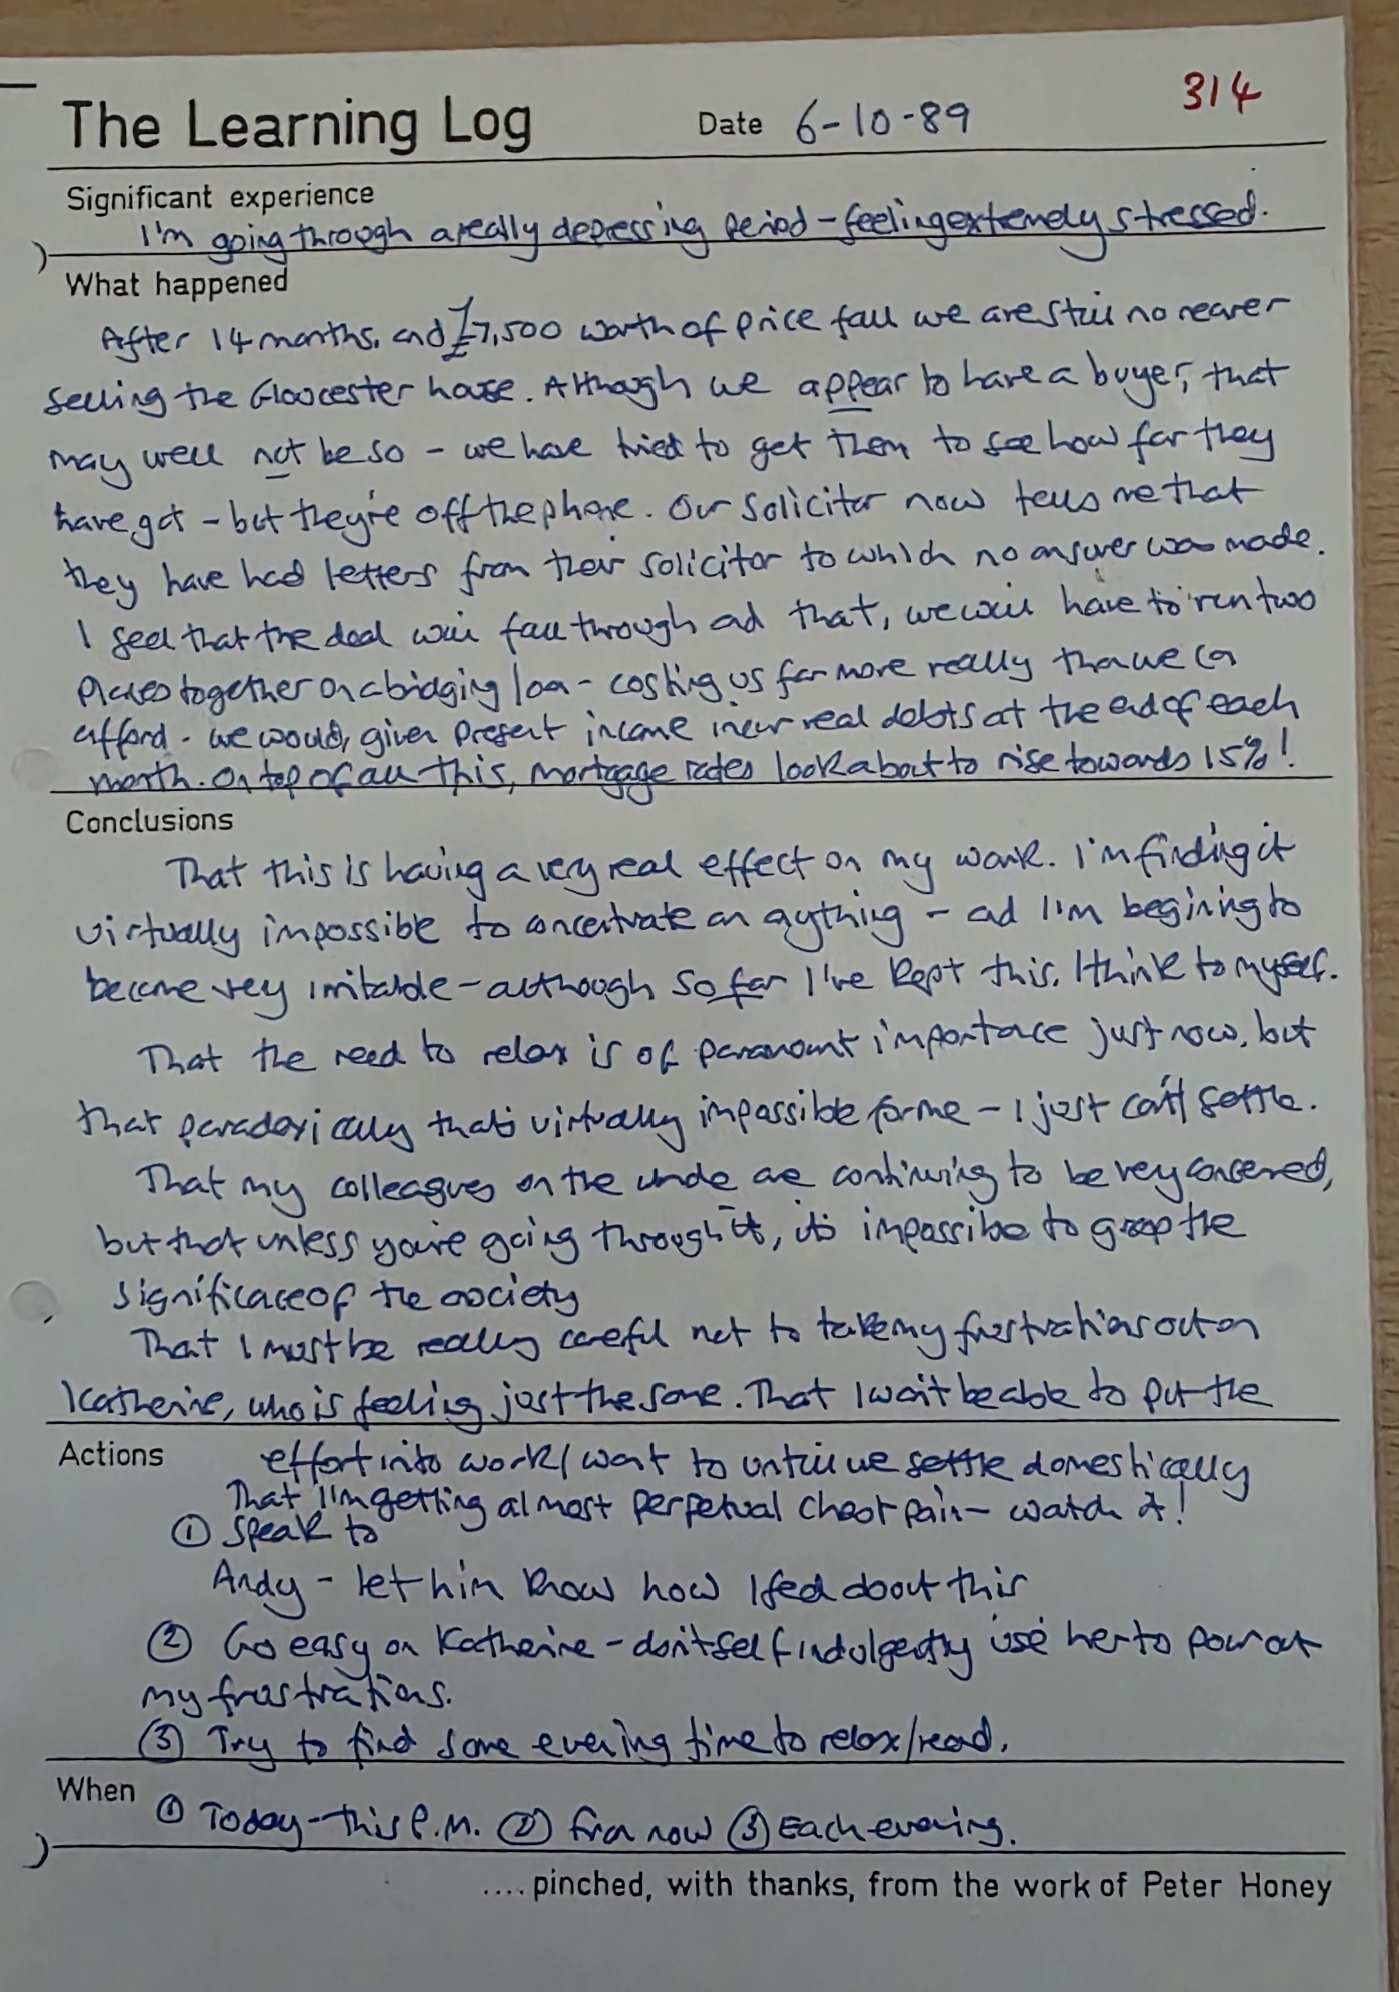 314
The Learning Log Date 6-10-89
Significant experience
I'm going through a really depressing period - feeling extremely stressed.
What happened
After 14 months, and £7,500 worth of price fall we are still no nearer
selling the Gloucester house. Although we appear to have a buyer, that
may well not be so - we have tried to get them to see how far they
have got - but they're off the phone. Our solicitor now tells me that
they have had letters from their solicitor to which no answer was made.
I feel that the deal will fall through and that, we will have to run two
places together on a bridging loan - costing us far more really than we can
afford - we would, given present income incur real debts at the end of each
month. On top of all this, mortgage rates look about to rise towards 15%!
Conclusions
That this is having a very real effect on my work. I'm finding it
virtually impossible to concentrate on anything - and I'm begining to
become very irritable - although so far I've kept this, I think to myself.
That the need to relax is of paramount importance just now, but
that paradoxically that's virtually impossible for me - I just can't settle.
That my colleagues on the whole are continuing to be very concerned,
but that unless you're going through it, it's impossible to grasp the
significance of the anxiety
That I must be really careful not to take my frustrations out on
Katherine, who is feeling just the same. That I won't be able to put the
Actions effort into work I want to until we settle domestically
That I'm getting almost perpetual chest pain - watch it!
① Speak to
Andy - let him know how I feel about this
② Go easy on Katherine - don't self indulgently use her to pour out
my frustrations.
③ Try to find some evening time to relax/read.
When ① Today - this P.M. ② from now ③ Each evening.
.... pinched, with thanks, from the work of Peter Honey